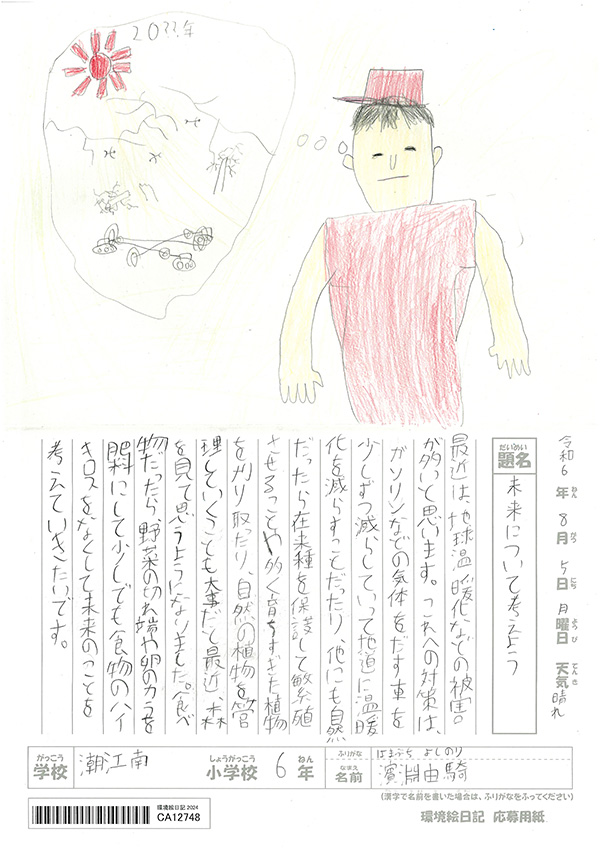 2033年
令和6年8月5日月曜日 天気晴れ
ねん がつ にち ようび てんき
だいめい
題名 未来について考えよう
最近は、地球温暖化などの被害。
が多いと思います。これへの対策は、
ガソリンなどの気体をだす車を
少しずつ減らしていって地道に温暖
化を減らすことだったり、他にも自然
だったら在来種を保護して繁殖
させることや多く育ちすぎた植物
を刈り取たり、自然の植物を管
理していくことも大事だと最近、森
を見て思うようになりました。食べ
物だったら野菜の切れ端や卵のカラを
肥料にして少しでも食物のハイ
キロスをなくして未来のことを
考えていきたいです。
がっこう しょうがっこう ねん ふりがな はまぶち よしのり
学校 潮江南 小学校 6年 なまえ 名前 濱淵由騎
(漢字で名前を書いた場合は、ふりがなをふってください)
環境絵日記 2024
CA12748
環境絵日記 応募用紙